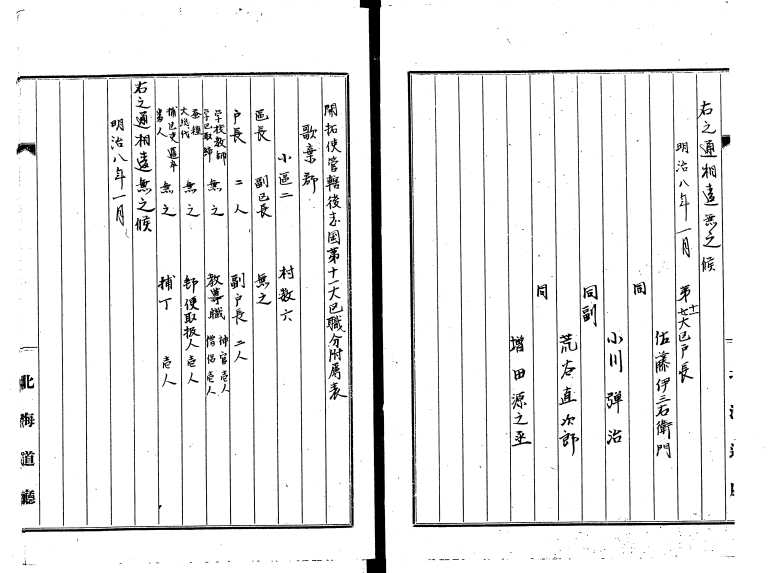 右之通相違無之候
明治八年一月
第廿十一大区戸長
佐藤伊三右衛門
同
小川弾治
同副
荒谷直次郎
同
増田源之丞
開拓使管轄後志国第十一大区職分附属表
歌棄郡
小区二 村数六
区長 副区長 無之
戸長 二人 副戸長 二人
学校教師
学区取締 無之 教導職 神官壱人
僧侶壱人
蚕種
大総代 無之 郵便取扱人 壱人
捕亡吏邏卒
番人 無之 捕丁 壱人
右之通相違無之候
明治八年一月
北海道廳